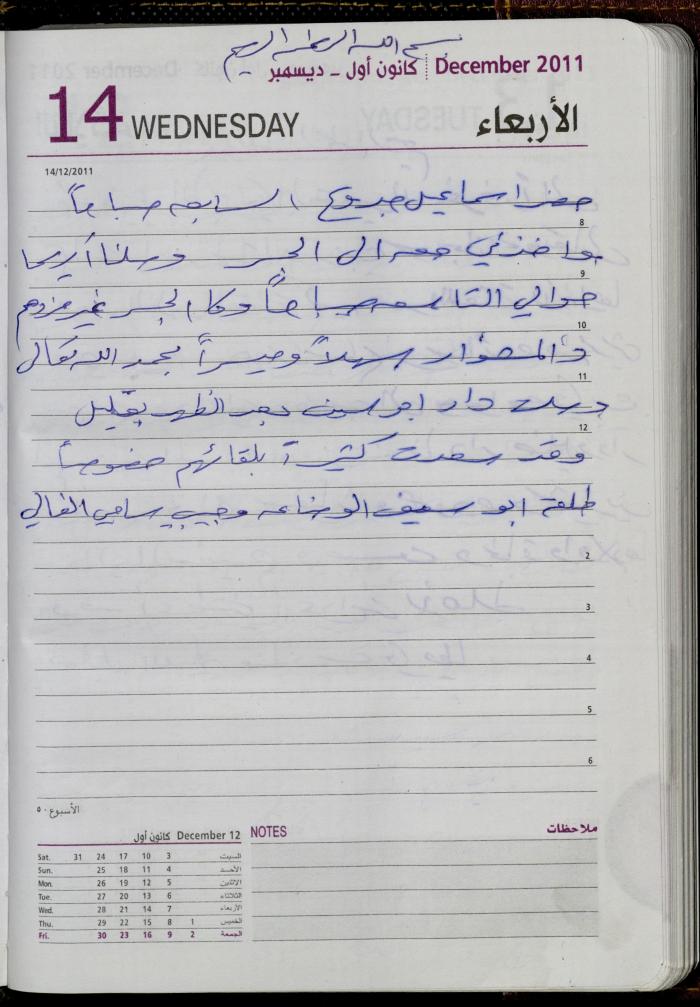 بسم الله الرحمن الرحيم
December 2011 | كانون أول - ديسمبر
14 WEDNESDAY الأربعاء
14/12/2011
حضر اسماعيل السابعة صباحاً
8
معه الى الجسر وصلنا أريحا
9
حوالي التاسعة صباحاً وكان الجسر غير مزدحم
10
سهلاً وميسراً بحمد الله تعالى
11
وصلت دار ابو بعد الظهر بقليل
12
وقد سعدت كثيراً بلقائهم خصوصاً
ابو سيف وحبيبي سامي الغالي
2
3
4
5
6
الأسبوع ٥٠
December 12 كانون أول
Sat. 31 24 17 10 3 السبت
Sun. 25 18 11 4 الأحد
Mon. 26 19 12 5 الاثنين
Tue. 27 20 13 6 الثلاثاء
Wed. 28 21 14 7 الأربعاء
Thu. 29 22 15 8 1 الخميس
Fri. 30 23 16 9 2 الجمعة
NOTES ملاحظات